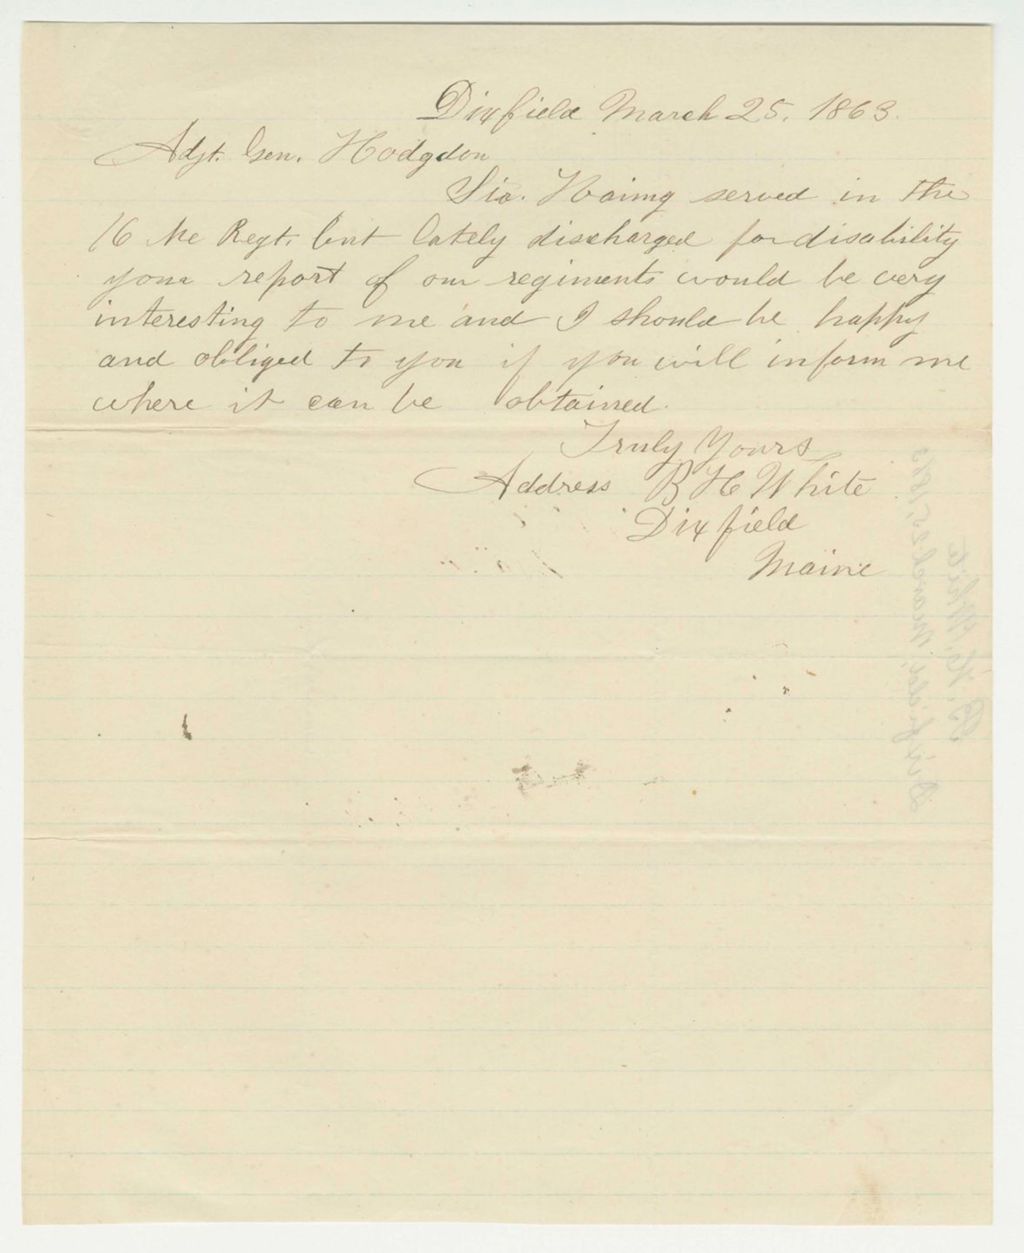 Dixfield March 25, 1863.
Adjt. Gen. Hodgdon
Sir. Having served in the
16 Me Regt. but lately discharged for disability
your report of our regiments would be very
interesting to me and I should be happy
and obliged to you if you will inform me
where it can be obtained.
Truly Yours
Address B H White
Dixfield
Maine
Dixfield, March 25, 1863
B. H. White